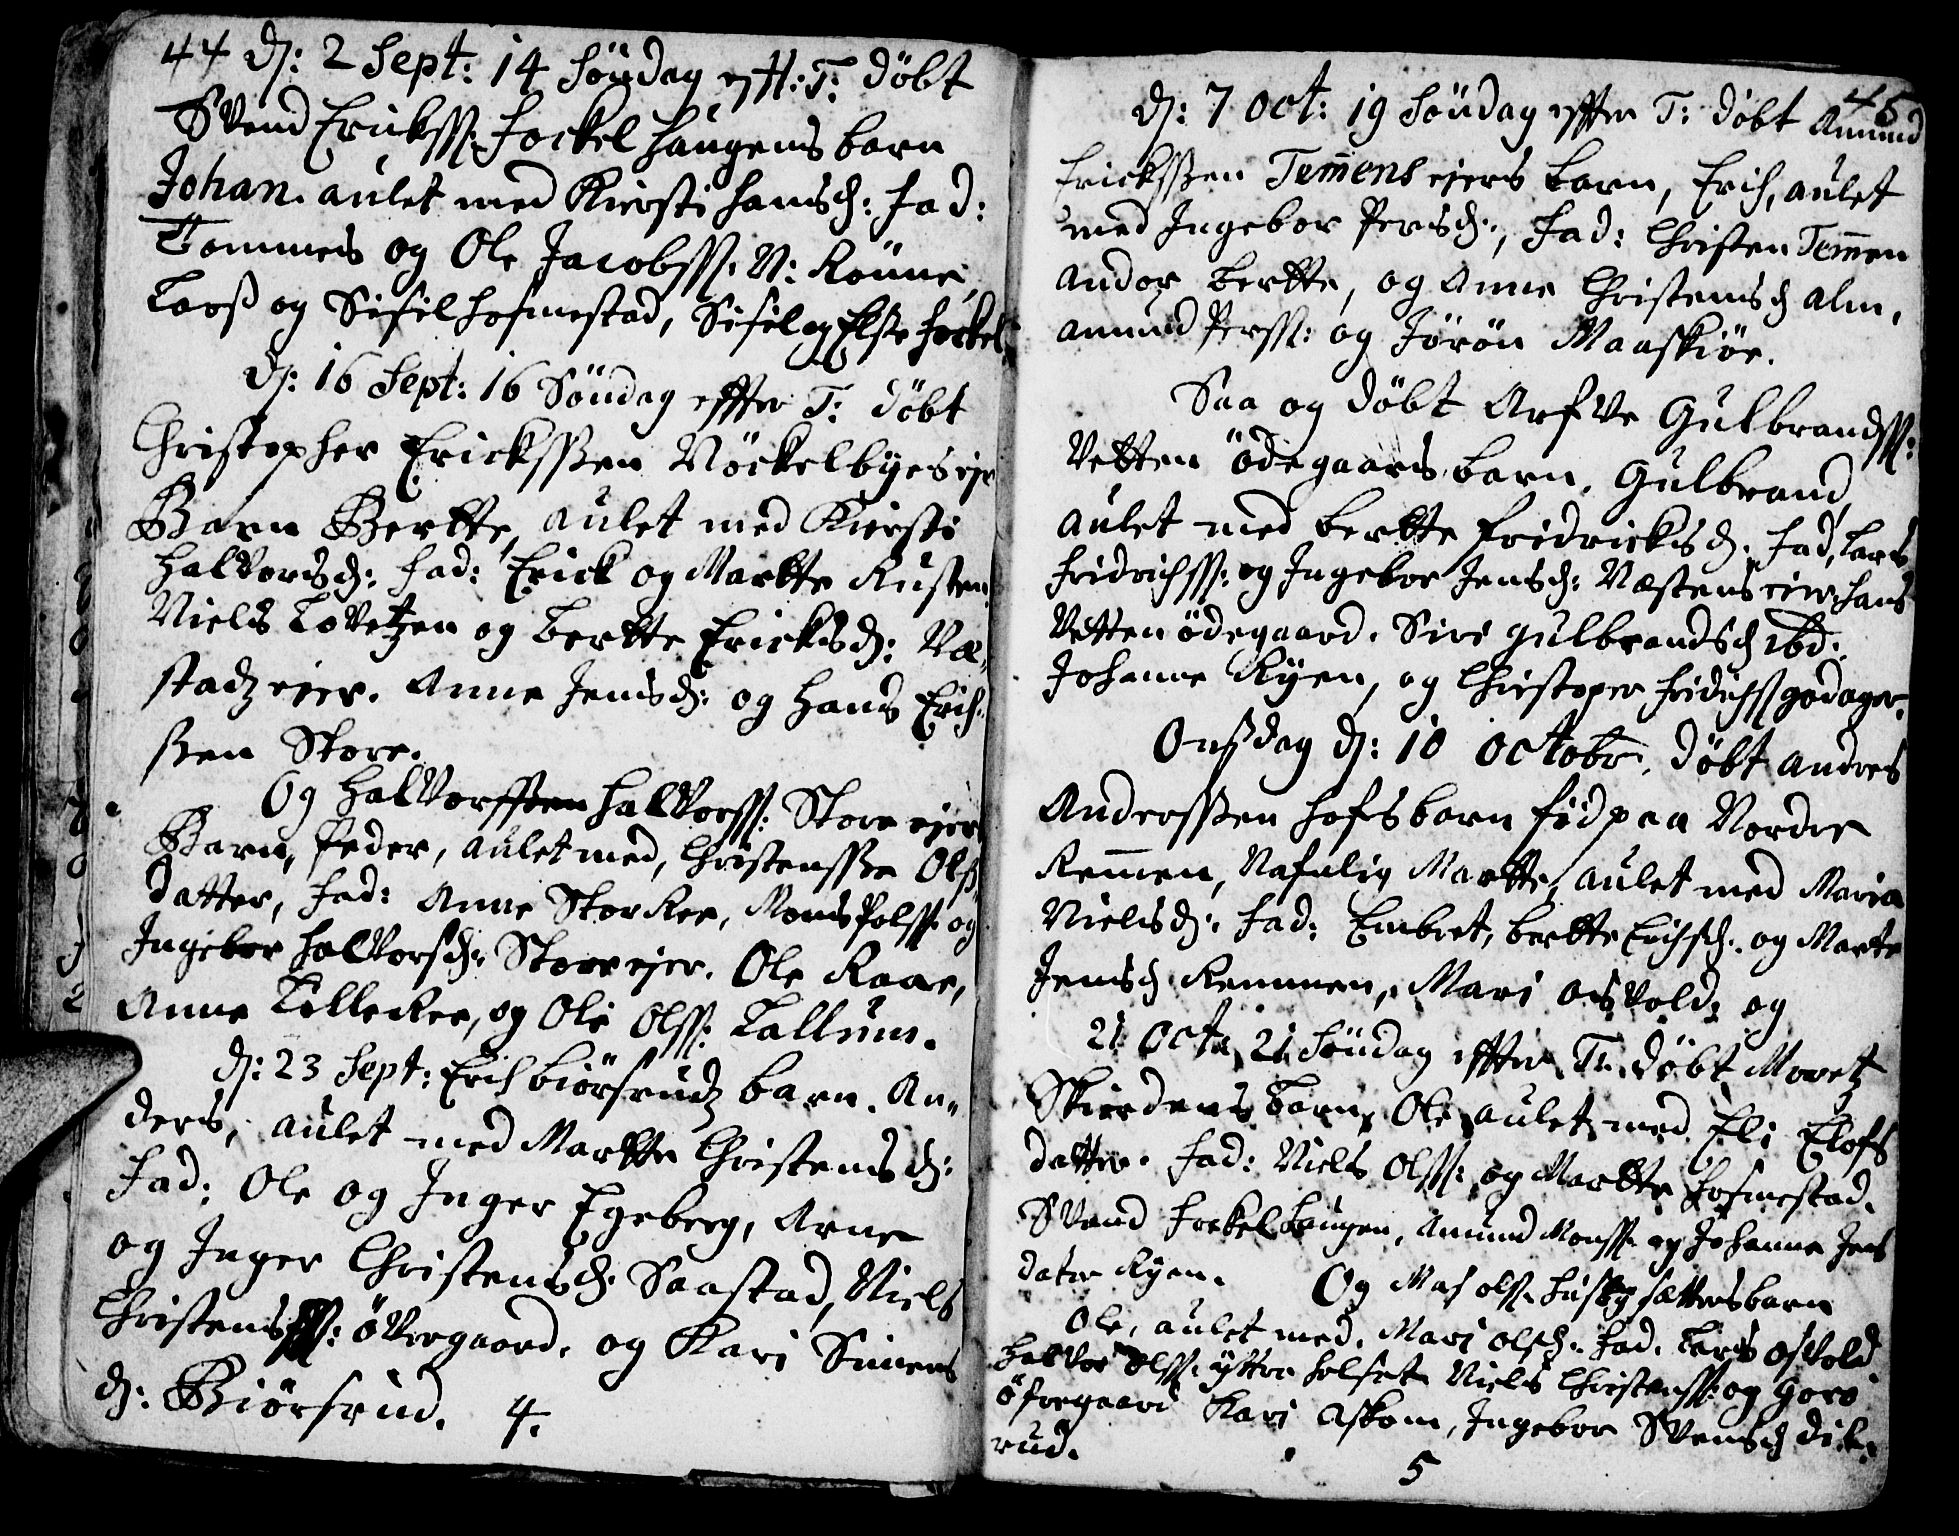 44 dj: 2 Sept: 14 Söndag efft: T: döbt
Svend Erickss: Fockel haugens barn
Johan. aulet med Kiersti Hansd: Fad:
Tommes og Ole Jacobss: N: Rönne,
Lars og Sisil Hofmestad, Sisil og Else Fockel
dj: 16 Sept: 16 Söndag effter T: döbt
Christopher Erickssen Nöckelbyes eje
Barn Bertte, aulet med Kiersti
Halvorsd: Fad: Erick og Martte Rusten,
Niels Lovetzen og Bertte Ericksd: Næ,,
stadz ejer. Anne Jensd: og Hans Erich,,
ssen Store.
Og Halvorssen Halvorss: Store ejer
Barn, Peder, aulet med, Christensse Olß,,
datter, Fad: Anne Storkee, Mons Polss: og
Ingebor Halvorsd: Store ejer. Ole Raae,
Anne Lilleckee, og Ole Olss: Lallum.
dj: 23 Sept: Erich Biörsrudz barn. An,,
ders, aulet med Martte Christensd:
Fad: Ole og Inger Egeberg, Arne
og Inger Christensd: Saastad, Niels
Christenss: övregaard. og Kari Simens
d: Biörsrud. 4.
45
dj: 7 Oct: 19 Söndag effter T: döbt Amund
Erickssen Temmens ejers barn, Erich, aulet
med Ingebor Persd:, Fad: Christen Temmen
Andor Bertte, og Anne Christensd Alm,
Amund Perss: og Jörön Maaskiör.
Saa og döbt Arfve Gulbrandss:
Vetten ödegaards barn, Gulbrand,
aulet med Bertte Fridricksd: Fad, Lars
Fridrichss: og Ingebor Jensd: Næstens eier. Hans
Vetten ödegaard. Siri Gulbrandsd ibd:
Johanne Ryen, og Christoper Fridichss godager.
Onsdag dj: 10 Octobr. döbt Andres
Anderssen Hofs barn fid paa Nordre
Remmen, Nafnlig Martte, aulet med Maria
Nielsd: Fad: Embret, Bertte Erichsd: og Marte
Jensd Remmen, Mari Osvold: og
21 Oct: 21 Söndag effter T: döbt Moretz
Skierdens Barn, Ole aulet med Eli Elofs
datter. Fad: Niels Olss: og Martte Hofmestad.
Svend Fockel haugen, Amund Monss: og Johanne Jens
dater Ryen. Og Mas Olss: Husby sætters barn
Ole, aulet med. Mari Olsd: Fad. Lars Osvold
Halvor Olss: ÿttre Holset Niels Christenss: og Goro
öfregaard Kari Askom, Ingebor Svensd Dil,,
rud.
5